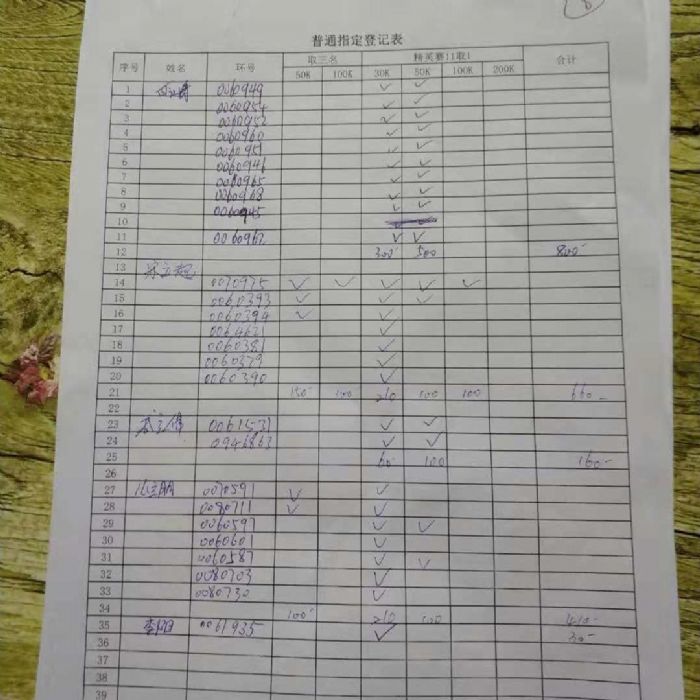 普通指定登记表
序号 姓名 环号 取三名 精英赛11取1 合计
50K 100K 30K 50K 100K 200K
1 0060949 ✓ ✓
2 0060954 ✓ ✓
3 0060952 ✓ ✓
4 0060960 ✓ ✓
5 0060951 ✓ ✓
6 0060946 ✓ ✓
7 0060965 ✓ ✓
8 0060968 ✓ ✓
9 0060945 ✓ ✓
10
11 0060962 ✓ ✓
12 300 500 800
13
14 0070975 ✓ ✓ ✓ ✓ ✓
15 0060393 ✓ ✓ ✓
16 0060394 ✓ ✓
17 0064621 ✓
18 0060381 ✓
19 0060379 ✓
20 0060390 ✓
21 150 100 210 100 100 660-
22
23 0061531 ✓ ✓
24 0946863 ✓ ✓
25 60 100 160-
26
27 0070591 ✓ ✓
28 0080711 ✓ ✓
29 0060597 ✓ ✓
30 0060601 ✓
31 0060587 ✓ ✓
32 0080703 ✓
33 0080730 ✓
34 100 210 100 410-
35 0061935 ✓ 30-
36
37
38
39